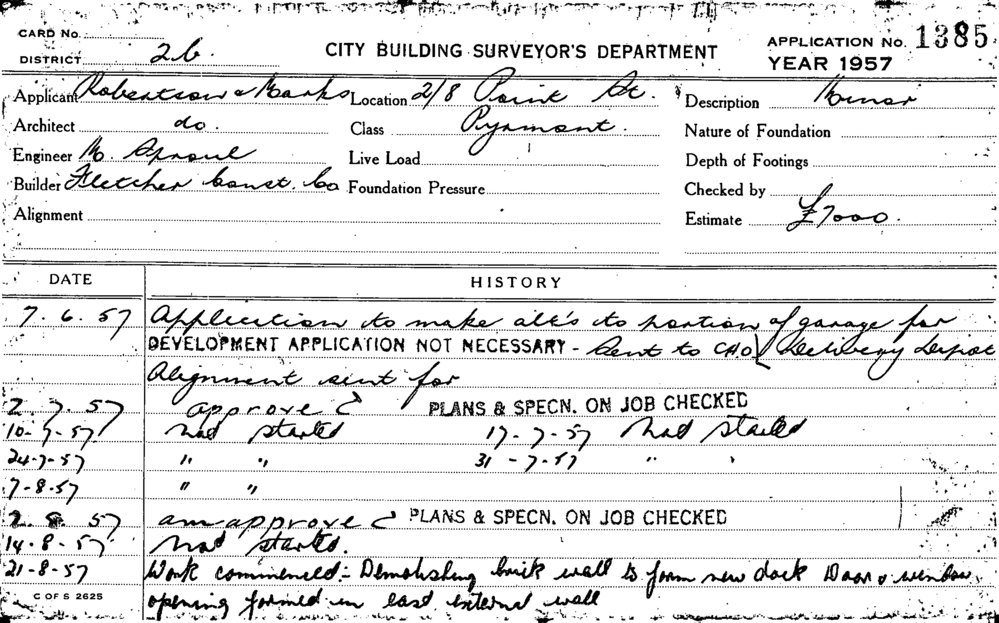 CARD No.
DISTRICT 26
CITY BUILDING SURVEYOR'S DEPARTMENT
APPLICATION No. 1385
YEAR 1957
Applicant Robertson & Marks Location 2/8 Point St. Description Minor
Architect do. Class Pyrmont. Nature of Foundation
Engineer M. Sproul Live Load Depth of Footings
Builder Fletcher Const. Co Foundation Pressure Checked by
Alignment Estimate £7000.
DATE HISTORY
7. 6. 57 Application to make alt's to portion of garage for
DEVELOPMENT APPLICATION NOT NECESSARY - Sent to CHO Delivery Depot
Alignment sent for
2. 7. 57 approved PLANS & SPECN. ON JOB CHECKED
10-7-57 Not started 17-7-57 Not started
24-7-57 " " 31-7-57 " "
7-8-57 " "
2. 8 57 am approved PLANS & SPECN. ON JOB CHECKED
14-8-57 Not started.
21-8-57 Work commenced - Demolishing brick wall to form new dock Door & window
opening formed in east external wall
C OF S 2625